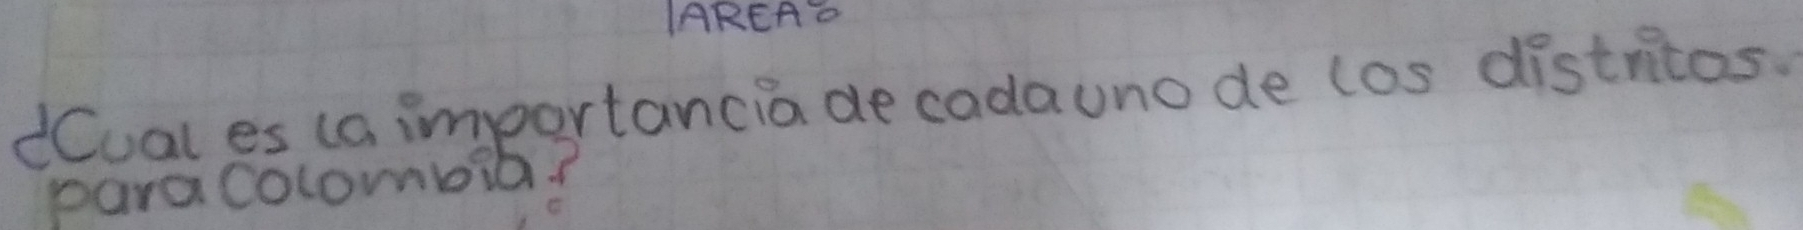 TAREA:
¿Cual es la importancia de cada uno de los distritos.
para Colombia?